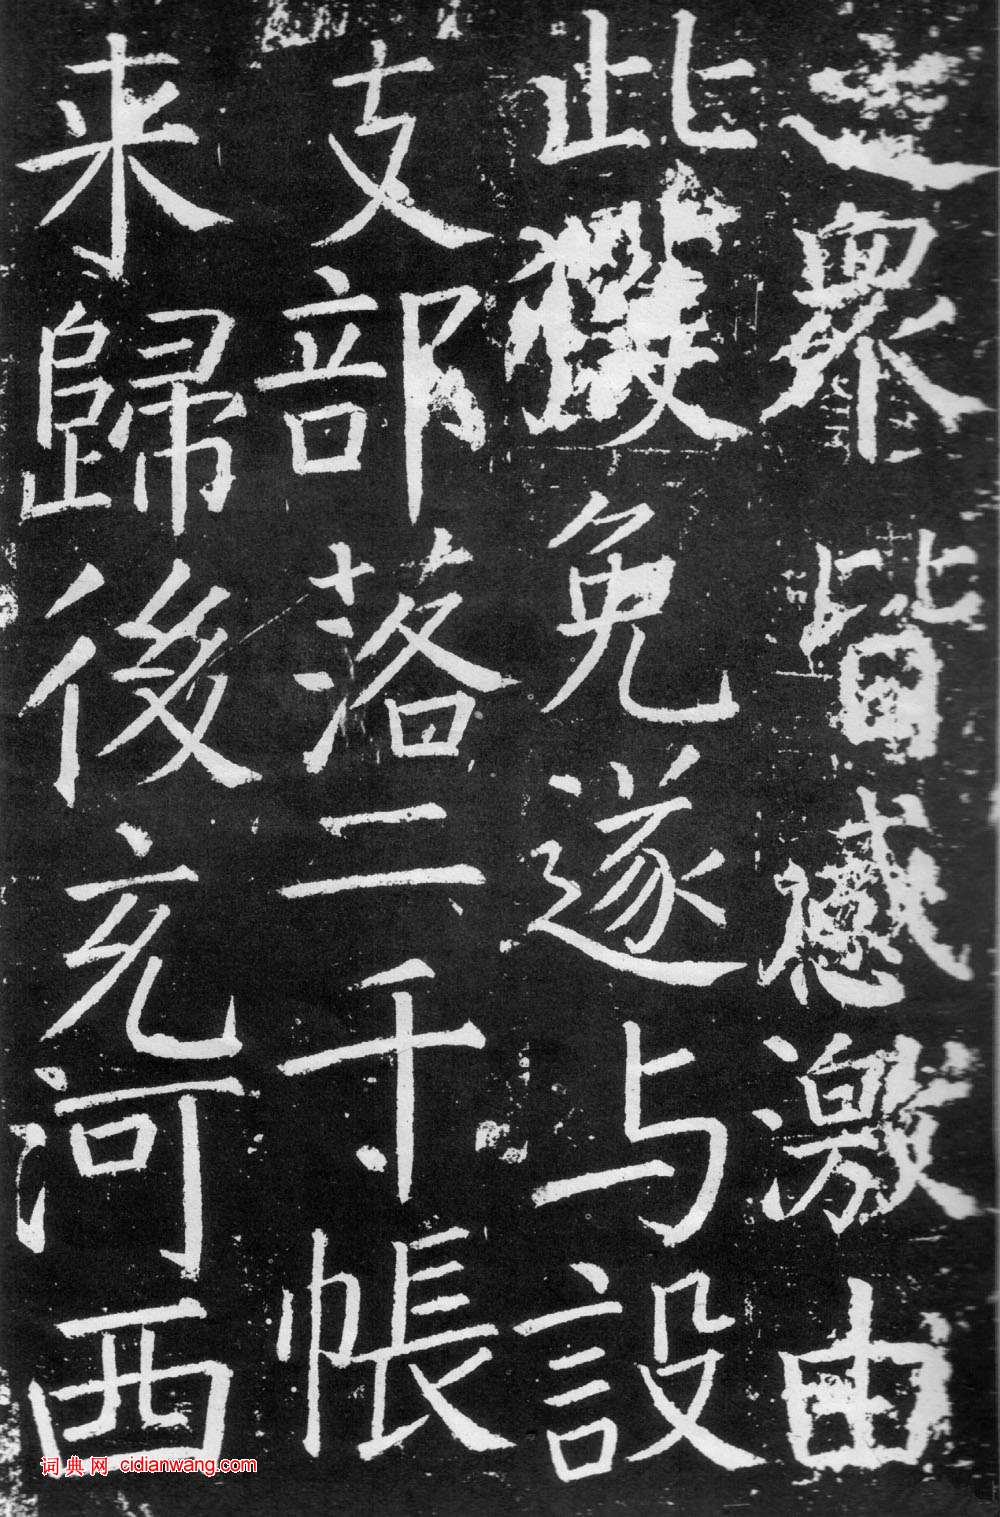 之眾皆感激由
此獲免遂与設
支部落二千帳
来歸後充河西
词典网 cidianwang.com